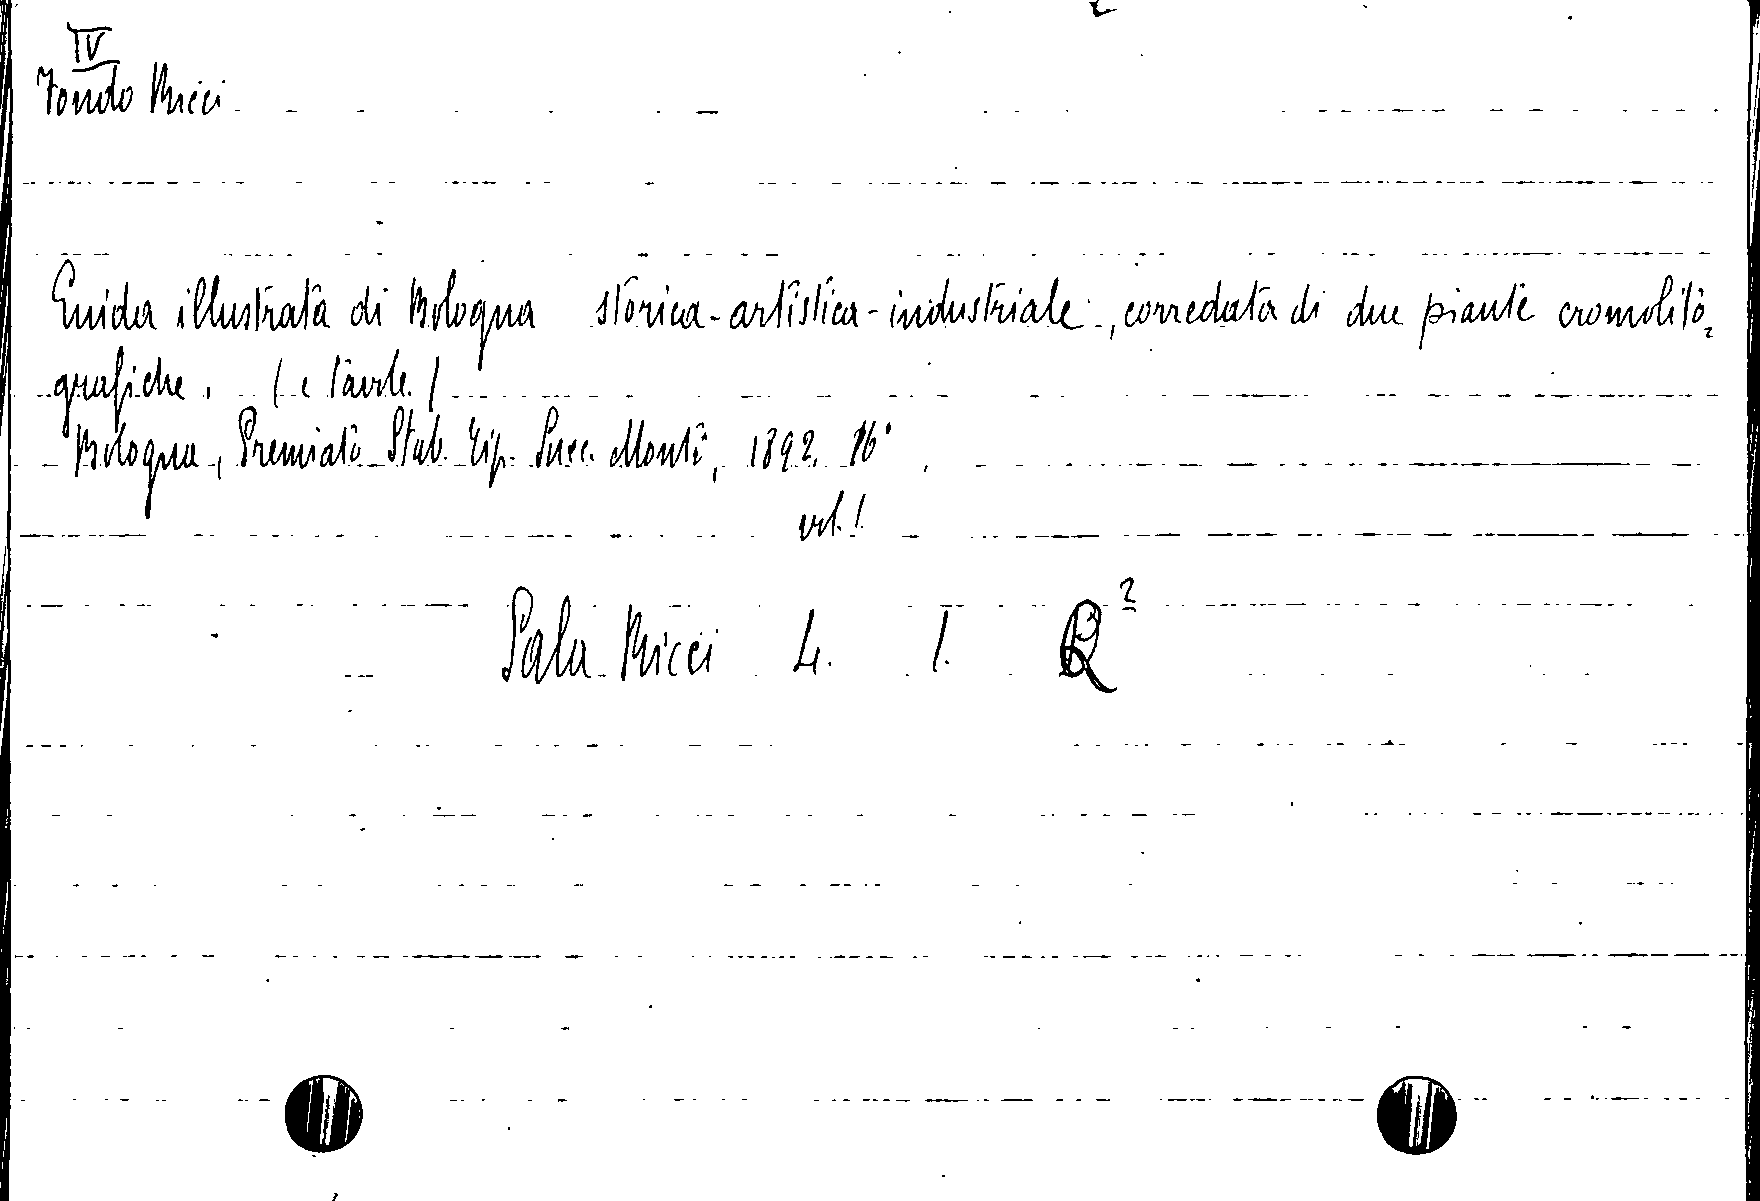 IV
Fondo Ricci
Guida illustrata di Bologna storica-artistica-industriale, corredata di due piante cromolito-
grafiche. (e tavole)
Bologna, Premiato Stab. Tip. Succ. Monti, 1892. 16°
vol. 1.
Sala Ricci L. 1. Q²